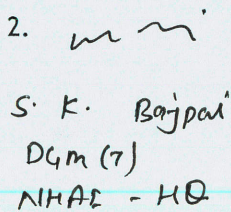 2.
S. K. Bajpai
DGM (T)
NHAI - HQ